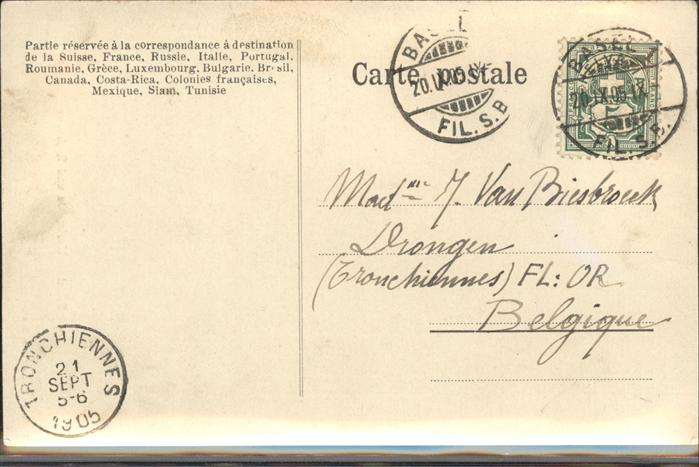 Partie réservée à la correspondance à destination
de la Suisse, France, Russie, Italie, Portugal.
Roumanie, Grèce, Luxembourg, Bulgarie. Brésil,
Canada, Costa-Rica, Colonies françaises,
Mexique, Siam, Tunisie
Carte postale
BASEL
20.IX.05.IX
FIL. S.B
BASEL
20.IX.05.IX
FIL. S.B.
Madme J. Van Biesbroeck
Drongen
(Tronchiennes) FL: OR
Belgique
TRONCHIENNES
21
SEPT
5-6
1905